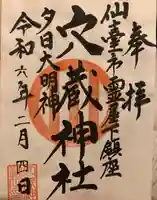 奉拝
仙臺市霊屋下鎮座
穴蔵神社
夕日大明神
令和六年二月四日